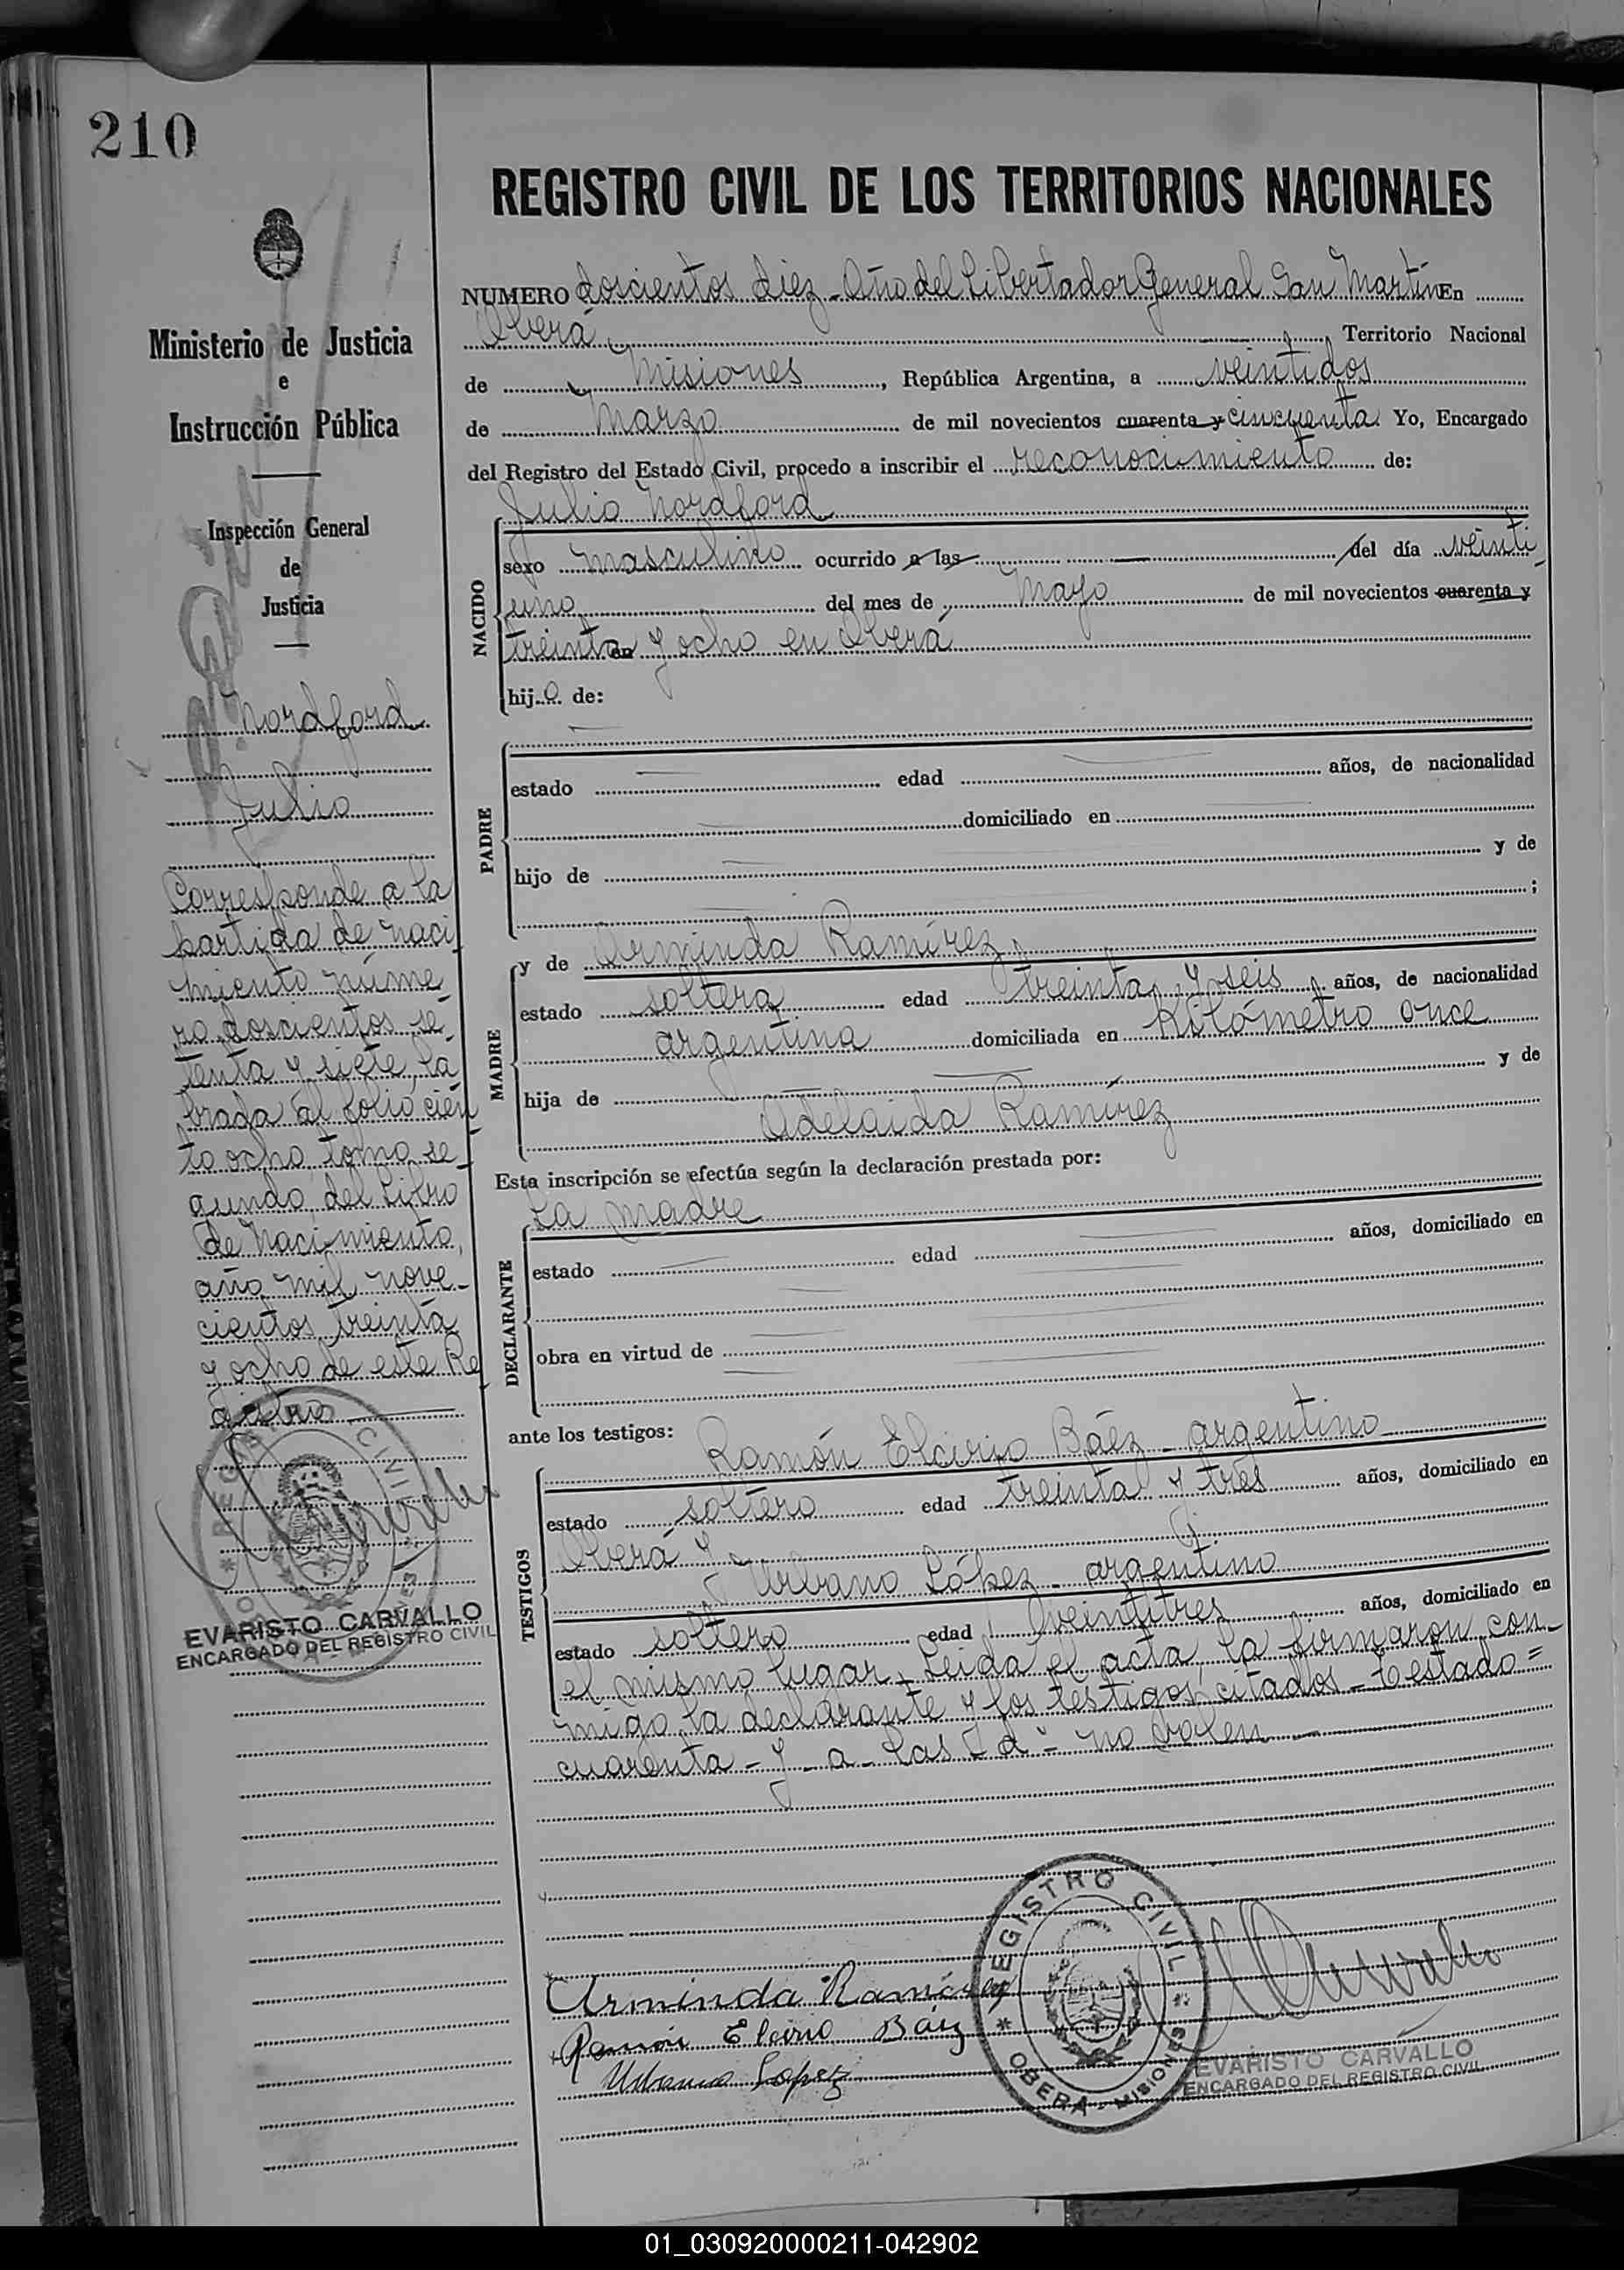 210
REGISTRO CIVIL DE LOS TERRITORIOS NACIONALES
Ministerio de Justicia
e
Instrucción Pública
Inspección General
de
Justicia
Nordford
Julio
Corresponde a la
partida de naci
miento núme
ro doscientos se
tenta y siete, la
brada al folio cien
to ocho tomo se
gundo del Libro
de Nacimiento,
año mil nove
cientos treinta
y ocho de este Re
gistro
REGISTRO CIVIL
EVARISTO CARVALLO
ENCARGADO DEL REGISTRO CIVIL
NUMERO doscientos diez - Año del Libertador General San Martín En
Oberá, Territorio Nacional
de Misiones, República Argentina, a veintidos
de Marzo de mil novecientos cuarenta y cincuenta Yo, Encargado
del Registro del Estado Civil, procedo a inscribir el reconocimiento de:
Julio Nordford
NACIDO
sexo masculino ocurrido a las del día veinti
uno del mes de Mayo de mil novecientos cuarenta y
treinta en y ocho en Oberá
hijo de:
PADRE
estado edad años, de nacionalidad
domiciliado en
hijo de y de
;
MADRE
y de Arminda Ramírez,
estado soltera edad treinta y seis años, de nacionalidad
argentina domiciliada en Kilómetro once
hija de y de
Adelaida Ramirez
Esta inscripción se efectúa según la declaración prestada por:
La madre
DECLARANTE
estado edad años, domiciliado en
obra en virtud de
ante los testigos:
TESTIGOS
Ramón Elcirio Báez - argentino
estado soltero edad treinta y tres años, domiciliado en
Oberá y
Urbano López - argentino
estado soltero edad veintitres años, domiciliado en
el mismo lugar. Leida el acta, la firmaron con
migo, la declarante y los testigos citados - Testado =
cuarenta - y - a - las - d - no valen
Arminda Ramírez
Ramón Elcirio Báez
Urbano Lopez
REGISTRO CIVIL
OBERA - MISIONES
EVARISTO CARVALLO
ENCARGADO DEL REGISTRO CIVIL
01_030920000211-042902